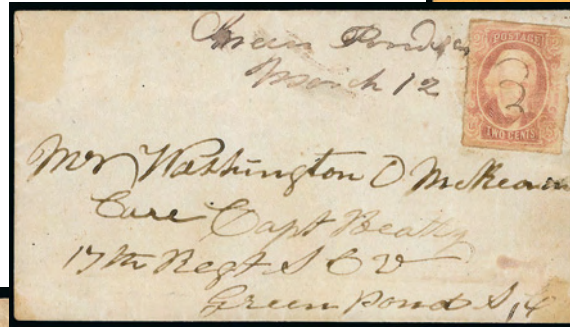 Green Pond SC
March 12
POSTAGE
TWO CENTS
Mr Washington D McKeown
Care Capt Beatty
17th Regt S C V
Green Pond S, C